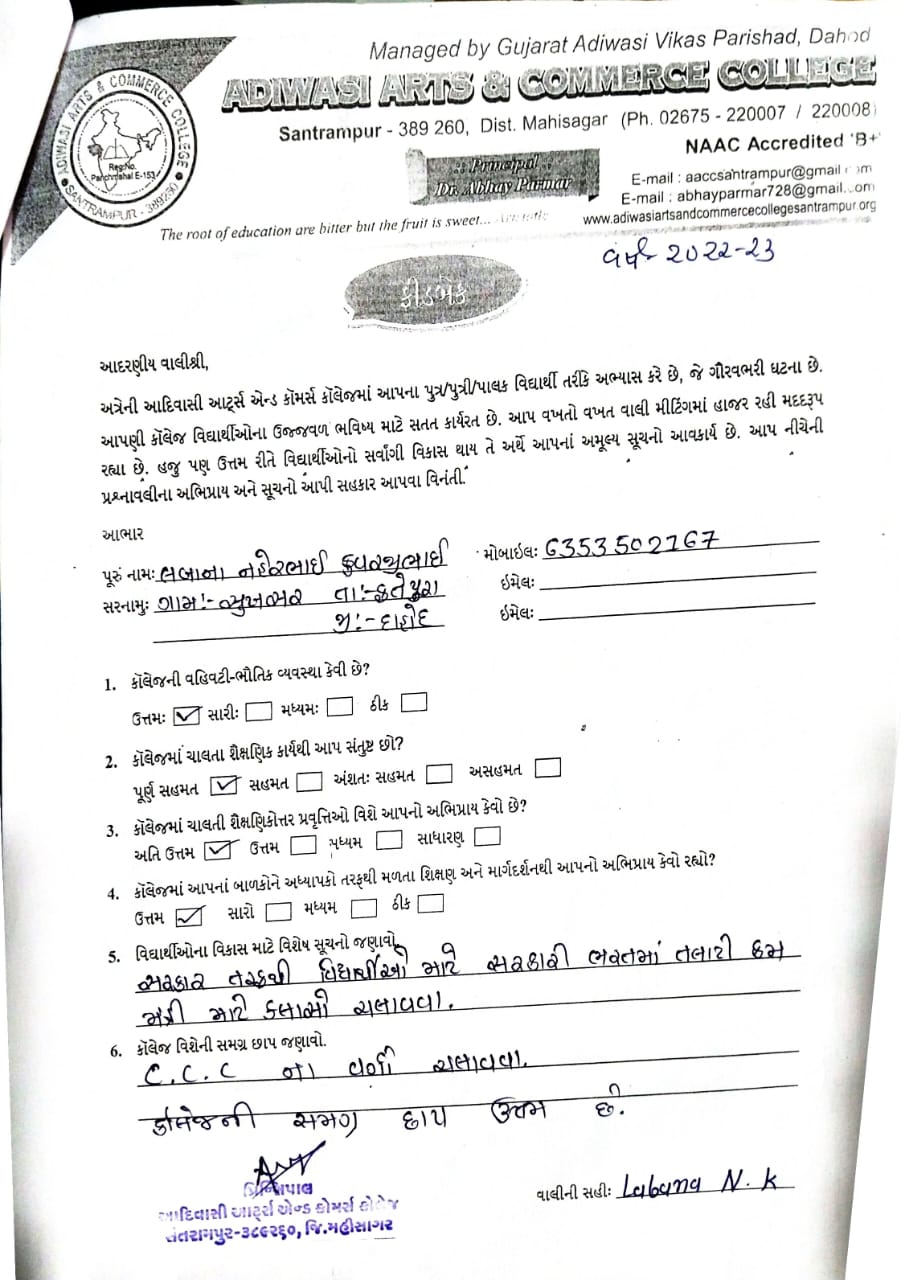 Managed by Gujarat Adiwasi Vikas Parishad, Dahod
ADIWASI ARTS & COMMERCE COLLEGE
Santrampur - 389 260, Dist. Mahisagar (Ph. 02675 - 220007 / 220008)
NAAC Accredited 'B+'
ADIWASI ARTS & COMMERCE COLLEGE
Reg.No.
Panchmahal E-153
SANTRAMPUR - 389260
:: Principal ::
Dr. Abhay Parmar
E-mail : aaccsantrampur@gmail.com
E-mail : abhayparmar728@gmail.com
www.adiwasiartsandcommercecollegesantrampur.org
The root of education are bitter but the fruit is sweet...
વર્ષ 2022-23
ફીડબેક
આદરણીય વાલીશ્રી,
અત્રેની આદિવાસી આર્ટ્સ એન્ડ કૉમર્સ કૉલેજમાં આપના પુત્ર/પુત્રી/પાલક વિદ્યાર્થી તરીકે અભ્યાસ કરે છે, જે ગૌરવભરી ઘટના છે.
આપણી કૉલેજ વિદ્યાર્થીઓના ઉજ્જવળ ભવિષ્ય માટે સતત કાર્યરત છે. આપ વખતો વખત વાલી મીટિંગમાં હાજર રહી મદદરૂપ
રહ્યા છે. હજુ પણ ઉત્તમ રીતે વિદ્યાર્થીઓનો સર્વાંગી વિકાસ થાય તે અર્થે આપનાં અમૂલ્ય સૂચનો આવકાર્ય છે. આપ નીચેની
પ્રશ્નાવલીના અભિપ્રાય અને સૂચનો આપી સહકાર આપવા વિનંતી.
આભાર
પૂરું નામ: લબાના નહેરભાઈ કુવરજીભાઈ
મોબાઇલ: 6353502167
સરનામુ: ગામ:- સુખસર તા:- ફતેપુરા
ઇમેલ:
જી:- દાહોદ
ઇમેલ:
1. કૉલેજની વહિવટી-ભૌતિક વ્યવસ્થા કેવી છે?
ઉત્તમ: ✓ સારી: મધ્યમ: ઠીક
2. કૉલેજમાં ચાલતા શૈક્ષણિક કાર્યથી આપ સંતુષ્ટ છો?
પૂર્ણ સહમત ✓ સહમત અંશતઃ સહમત અસહમત
3. કૉલેજમાં ચાલતી શૈક્ષણિકોત્તર પ્રવૃત્તિઓ વિશે આપનો અભિપ્રાય કેવો છે?
અતિ ઉત્તમ ✓ ઉત્તમ મધ્યમ સાધારણ
4. કૉલેજમાં આપનાં બાળકોને અધ્યાપકો તરફથી મળતા શિક્ષણ અને માર્ગદર્શનથી આપનો અભિપ્રાય કેવો રહ્યો?
ઉત્તમ ✓ સારો મધ્યમ ઠીક
5. વિદ્યાર્થીઓના વિકાસ માટે વિશેષ સૂચનો જણાવો.
સરકાર તરફથી વિદ્યાર્થીઓ માટે સરકારી ભરતમાં તલાટી કમ
મંત્રી માટે કલાસો ચલાવવા.
6. કૉલેજ વિશેની સમગ્ર છાપ જણાવો.
C.C.C ના વર્ગો ચલાવવા.
કોલેજની સમગ્ર છાપ ઉત્તમ છે.
પ્રિન્સિપાલ
આદિવાસી આર્ટ્સ એન્ડ કોમર્સ કોલેજ
સંતરામપુર-૩૮૯૨૬૦, જિ.મહીસાગર
વાલીની સહી: Labana N. K